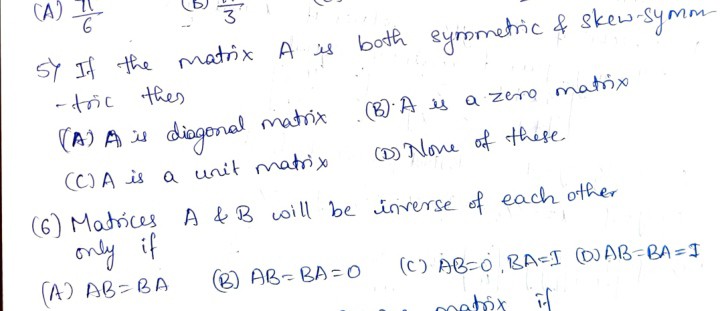 (A) π/6 (B) π/3
5) If the matrix A is both symmetric & skew-symm
-tric then
(A) A is diagonal matrix (B) A is a zero matrix
(C) A is a unit matrix (D) None of these
(6) Matrices A & B will be inverse of each other
only if
(A) AB=BA (B) AB=BA=0 (C) AB=0, BA=I (D) AB=BA=I
matrix if